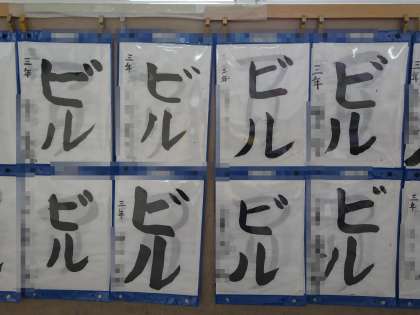 三年
ビル
三年
ビル
三年
ビル
三年
ビル
三年
ビル
三年
ビル
ビル
三年
ビル